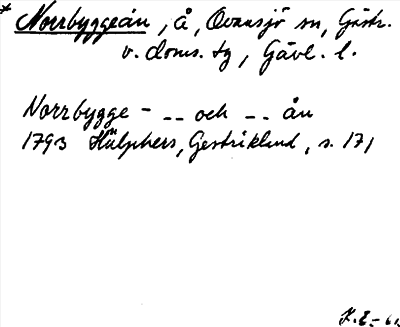 * Norrbyggeån, Å, Ovansjö sn, Gästr.
v. doms. tg, Gävl. l.
Norrbygge - -- och -- ån
1793 Hülphers, Gestrikland, s. 171
K.E. - 61